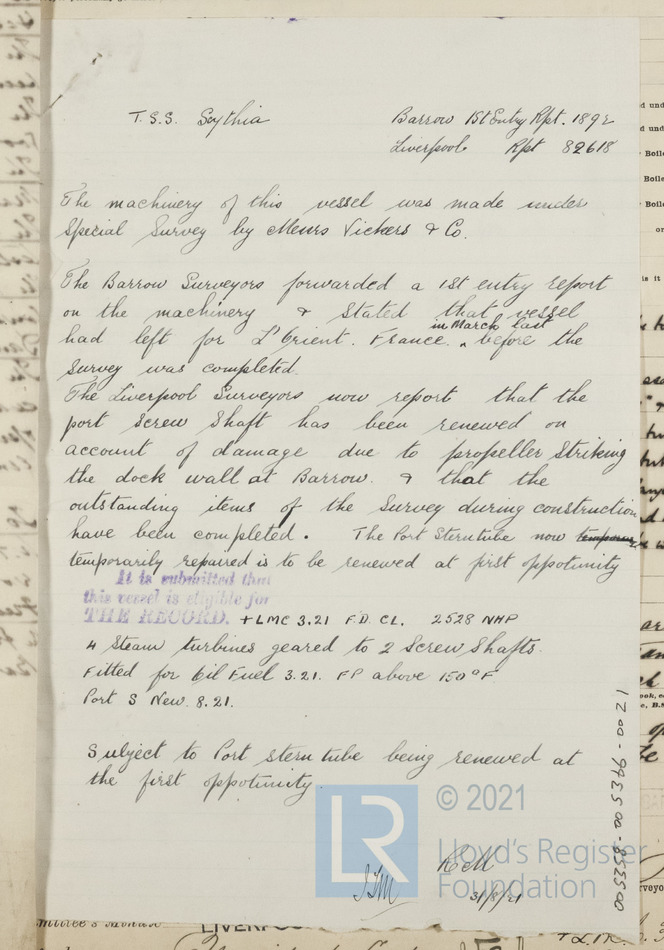 T.S.S. Scythia
Barrow 1st Entry Rpt. 1892
Liverpool Rpt 82618
The machinery of this vessel was made under
Special Survey by Messrs Vickers & Co.
The Barrow Surveyors forwarded a 1st entry report
on the machinery & stated that vessel
in March last
had left for L'Orient. France. ^ before the
Survey was completed.
The Liverpool Surveyors now report that the
port Screw Shaft has been renewed on
account of damage due to propeller striking
the dock wall at Barrow. & that the
outstanding items of the Survey during construction
have been completed. The Port Sterntube now
temporarily repaired is to be renewed at first oppotunity
It is submitted that
this vessel is eligible for
THE RECORD. + LMC 3.21 F.D. CL. 2528 NHP
4 Steam turbines geared to 2 Screw Shafts.
Fitted for Oil Fuel 3.21. FP above 150°F.
Port S New. 8.21.
Subject to Port stern tube being renewed at
the first oppotunity
© 2021
Lloyd's Register
Foundation
LR
31/8/21
LIVERPOO